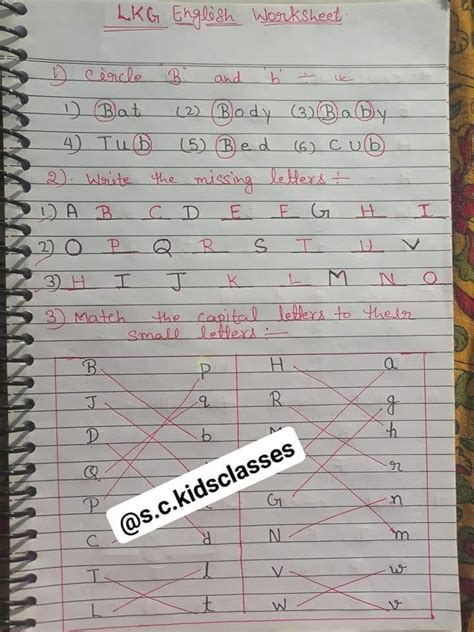 LKG English Worksheet.
1) Circle "B" and 'b' :-
1) Bat (2) Body (3) Baby
4) Tub (5) Bed (6) Cub
2). Write the missing letters :-
1.) A B C D E F G H I
2) O P Q R S T U V
3) H I J K L M N O
3) Match the capital letters to their
small letters :-
B p H a
J q R g
D b h
Q r
P G n
C d N m
T l V w
L t W v
@s.c.kidsclasses